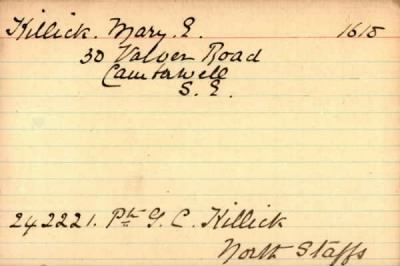 Killick. Mary E. 1615
30 Valver Road
Camberwell
S. E.
242221. Pte G. C. Killick
North Staffs